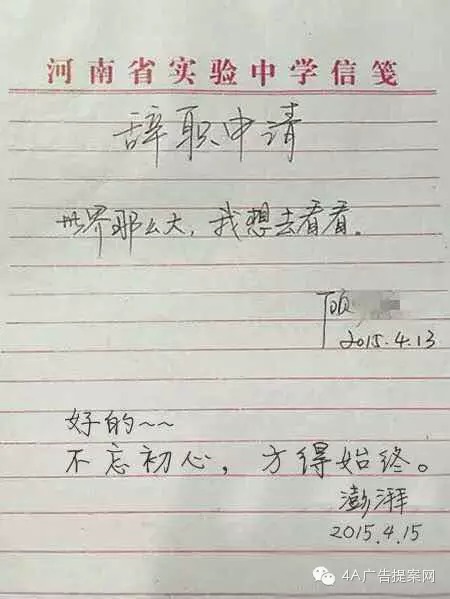 河南省实验中学信笺
辞职申请
世界那么大，我想去看看。
顾
2015.4.13
好的~~
不忘初心，方得始终。
澎湃
2015.4.15
4A广告提案网